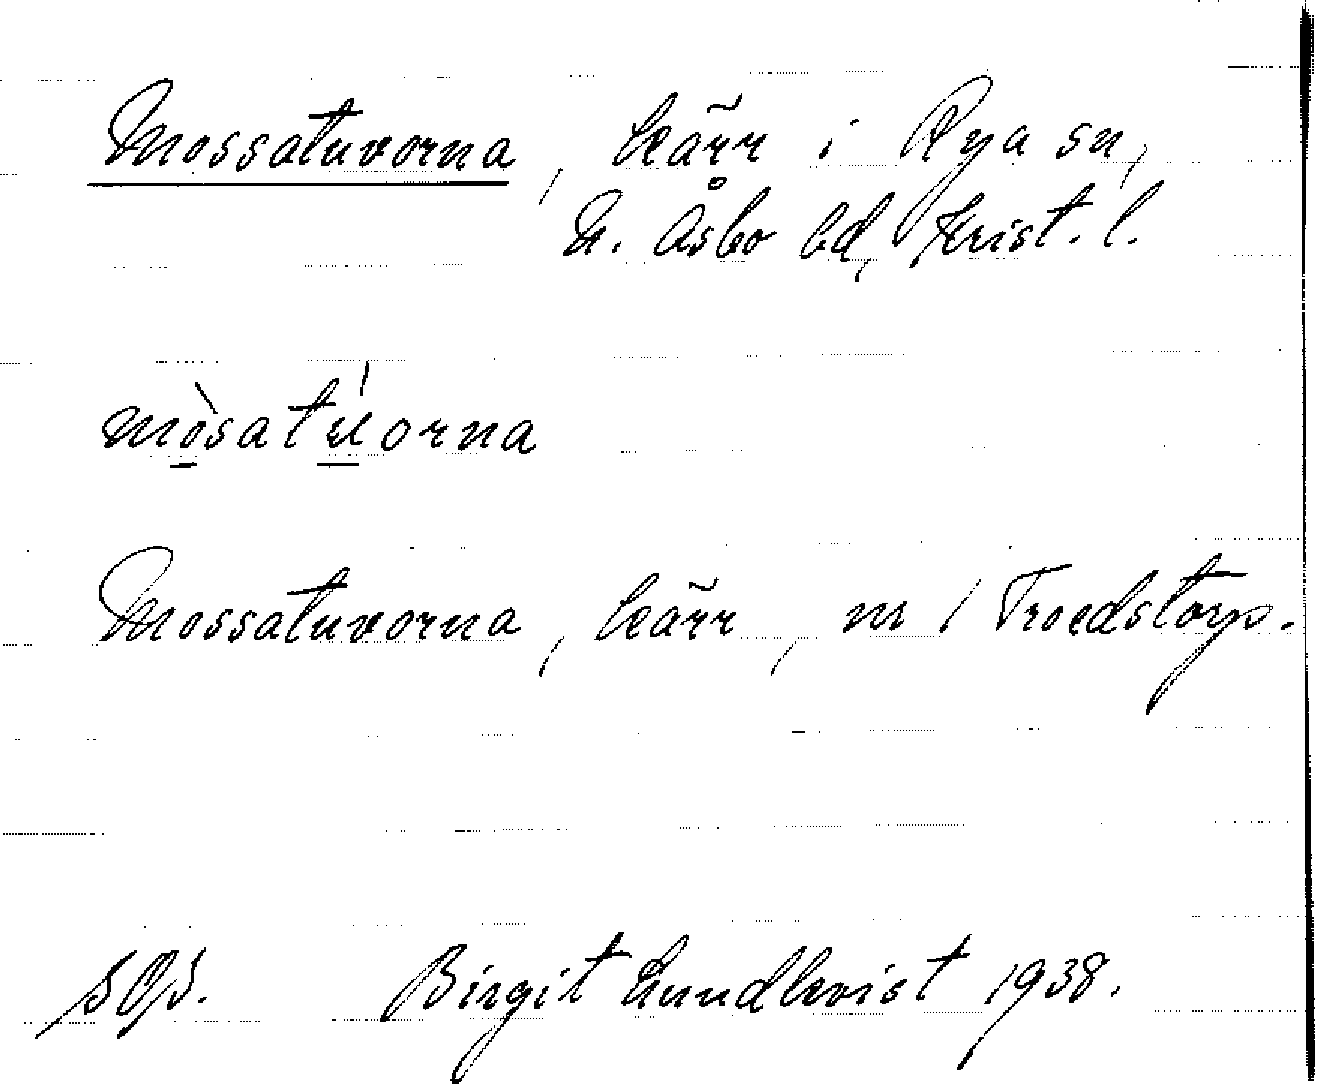 Mossatuvorna, kärr i Rya sn,
N. Åsbo hd, Krist. l.
mòsatúorna
Mossatuvorna, kärr, nr 1 Troedstorp.
Birgit Lundkvist 1938.